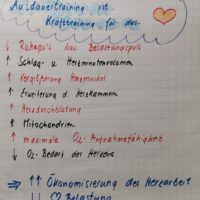 Ausdauertraining ist
Krafttraining für das
↓ Ruhepuls bzw Belastungspuls
↑ Schlag- u Herzminutenvolumen
↑ Vergrößerung Herzmuskel
↑ Erweiterung d Herzkammern
↑ Herzdurchblutung
↑ Mitochondrien
↑ maximale O₂-Aufnahmefähigkeit
↓ O₂-Bedarf des Herzens
⇒ ↑↑ Ökonomisierung der Herzarbeit
↓↓ ♡ Belastung